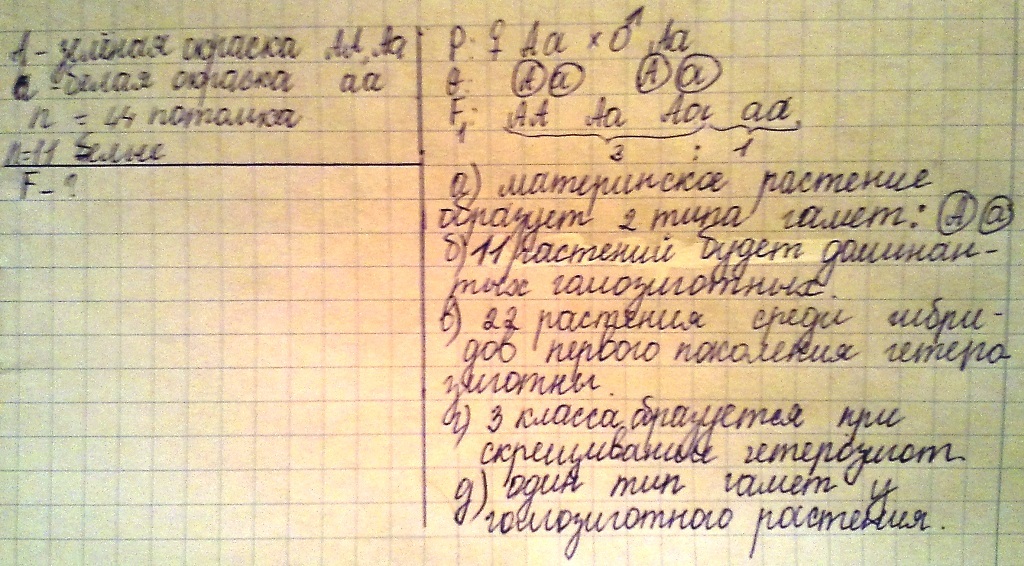 А - зелёная окраска АА, Аа
а - белая окраска аа
n = 44 потомка
n=11 белые
F - ?
Р: ♀ Аа × ♂ Аа
G: А а А а
F1: АА Аа Аа аа
3 : 1
а) материнское растение
образует 2 типа гамет: А а
б) 11 растений будет доминан-
тых гомозиготных.
в) 22 растения среди гибри-
дов первого поколения гетеро
зиготны.
г) 3 класса образуется при
скрещивании гетерозигот.
д) один тип гамет у
гомозиготного растения.